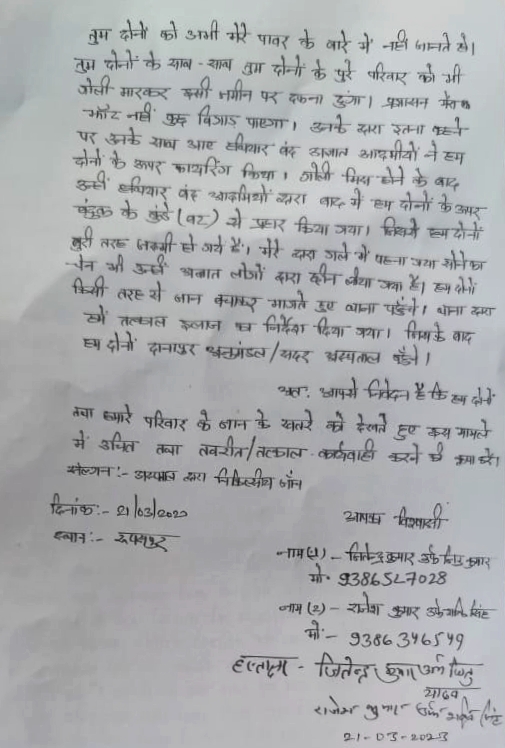 तुम दोनों को अभी मेरे पावर के बारे में नहीं जानते हो।
तुम दोनों के साथ-साथ तुम दोनों के पुरे परिवार को भी
गोली मारकर इसी जमीन पर दफना दुंगा। प्रशासन मेरा
झाँट नहीं कुछ बिगाड़ पाएगा। उनके द्वारा इतना कहने
पर उनके साथ आए हथियार बंद अज्ञात आदमीयों ने हम
दोनों के ऊपर फायरिंग किया। गोली मिस होने के बाद
उन्हीं हथियार बंद आदमियों द्वारा बाद में हम दोनों के ऊपर
बंदुक के कुंदे (बट) से प्रहार किया गया। जिससे हम दोनों
बुरी तरह जख्मी हो गये हैं। मेरे द्वारा गले में पहना गया सोने का
चेन भी उन्हीं अज्ञात लोगों द्वारा छीन लीया गया है। हम दोनों
किसी तरह से जान बचाकर भागते हुए थाना पहुँचे। थाना द्वारा
हमें तत्काल इलाज का निर्देश दिया गया। जिसके बाद
हम दोनों दानापुर अनुमंडल/सदर अस्पताल पहुँचे।
अतः आपसे निवेदन है कि हम दोनों
तथा हमारे परिवार के जान के खतरे को देखते हुए इस मामले
में उचित तथा त्वरीत/तत्काल कार्यवाही करने की कृपा करें।
संलग्न:- अस्पताल द्वारा चिकित्सीय जाँच
दिनांक:- 21/03/2023
आपका विश्वासी
स्थान:- रुपसपुर
नाम (1) - जितेन्द्र कुमार उर्फ जितु कुमार
मो. 9386527028
नाम (2) - राजेश कुमार उर्फ सिंह
मो:- 9386346549
हस्ताक्षर - जितेन्द्र कुमार उर्फ जितु
यादव
राजेश कुमार उर्फ सिंह
21-03-2023